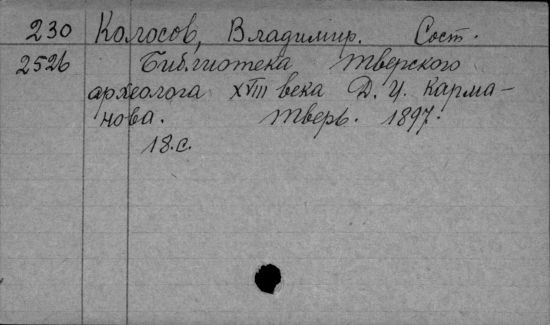 230 Колосов, Владимир. Сост.
2526 Библиотека тверского
археолога XVIII века Д. И. Карма-
нова. Тверь. 1897.
18.с.